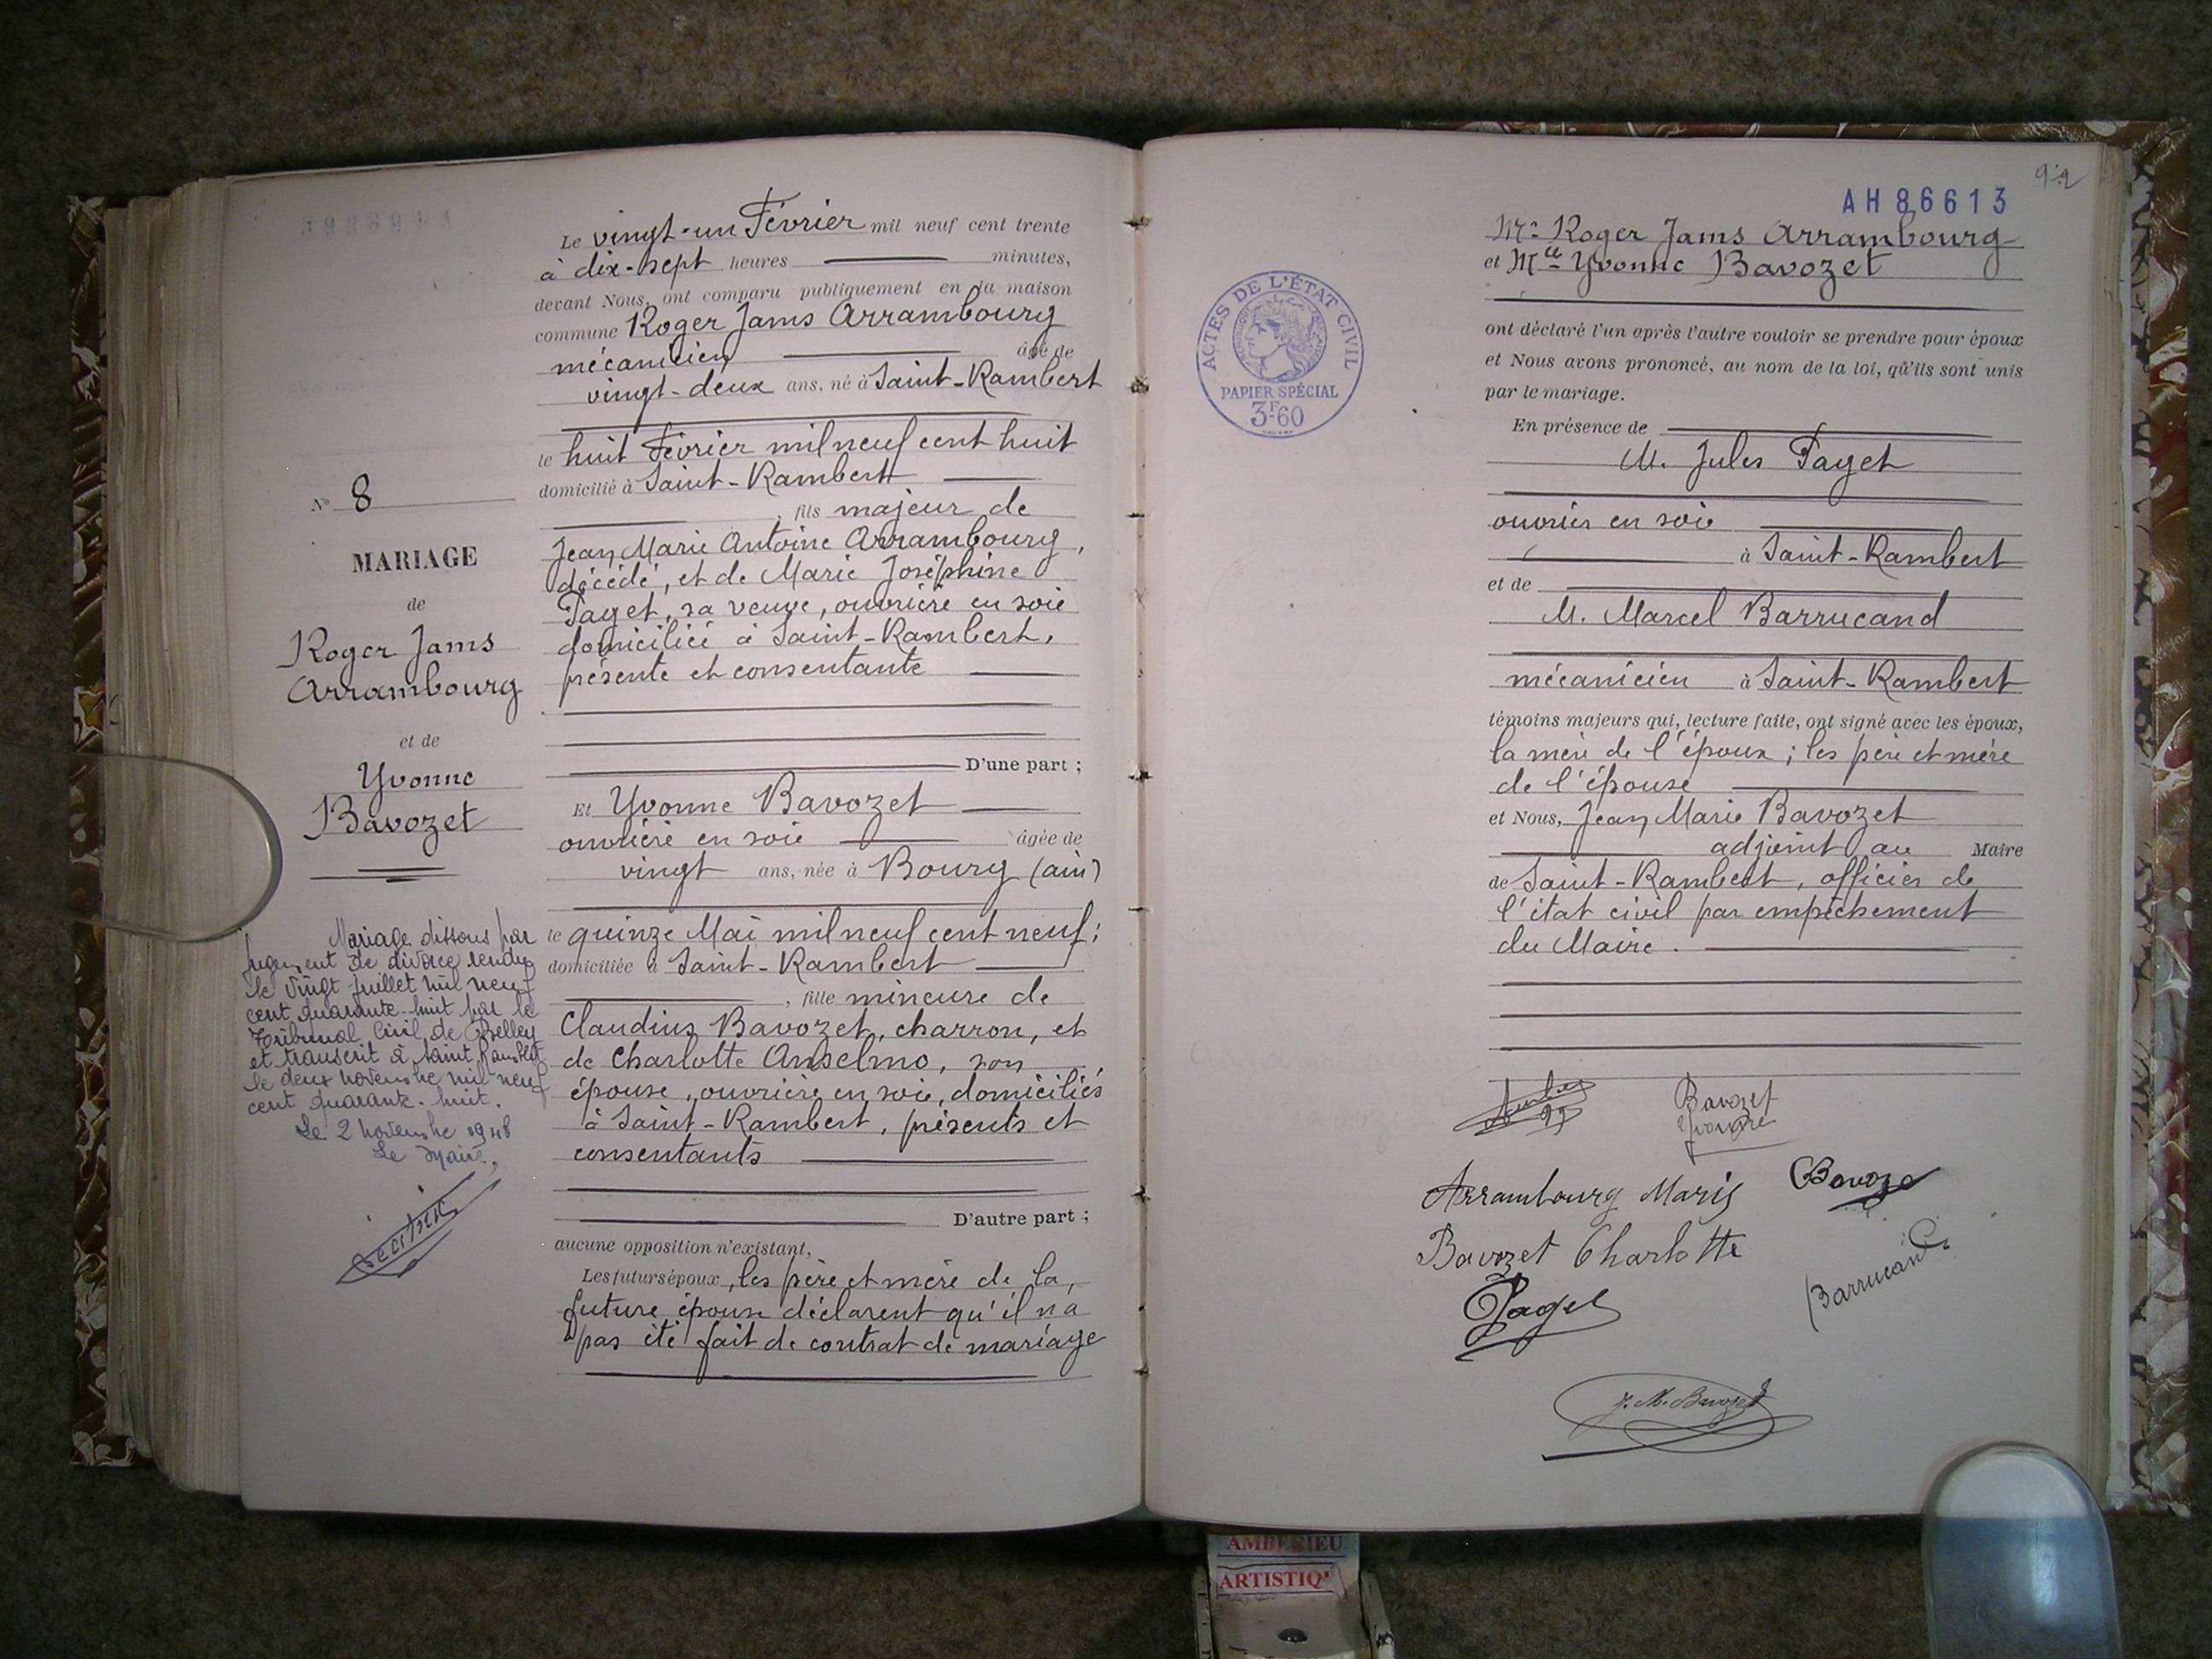 N° 8
MARIAGE
de
Roger Jams
Arrambourg
et de
Yvonne
Bavozet
Mariage dissous par
jugement de divorce rendu
le vingt juillet mil neuf
cent quarante-huit par le
Tribunal Civil de Belley
et transcrit à Saint Rambert
le deux novembre mil neuf
cent quarante-huit.
Le 2 novembre 1948
Le Maire,
Le vingt-un Février mil neuf cent trente
à dix-sept heures minutes,
devant Nous, ont comparu publiquement en la maison
commune Roger Jams Arrambourg
mécanicien âgé de
vingt-deux ans, né à Saint-Rambert
le huit Février mil neuf cent huit
domicilié à Saint-Rambert
, fils majeur de
Jean Marie Antoine Arrambourg,
décédé, et de Marie Joséphine
Paget, sa veuve, ouvrière en soie
domiciliée à Saint-Rambert,
présente et consentante
D'une part ;
Et Yvonne Bavozet
ouvrière en soie âgée de
vingt ans, née à Bourg (ain)
le quinze Mai mil neuf cent neuf ;
domiciliée à Saint-Rambert
, fille mineure de
Claudius Bavozet, charron, et
de Charlotte Anselmo, son
épouse, ouvrière en soie, domiciliés
à Saint-Rambert, présents et
consentants
D'autre part ;
aucune opposition n'existant,
Les futurs époux, les père et mère de la
future épouse déclarent qu'il n'a
pas été fait de contrat de mariage
92
AH 86613
ACTES DE L'ÉTAT CIVIL
PAPIER SPÉCIAL
3F60
Mr Roger Jams Arrambourg
et Mlle Yvonne Bavozet
ont déclaré l'un après l'autre vouloir se prendre pour époux
et Nous avons prononcé, au nom de la loi, qu'ils sont unis
par le mariage.
En présence de
M. Jules Paget
ouvrier en soie
à Saint-Rambert
et de
M. Marcel Barrucand
mécanicien à Saint-Rambert
témoins majeurs qui, lecture faite, ont signé avec les époux,
la mère de l'époux ; les père et mère
de l'épouse
et Nous, Jean Marie Bavozet
adjoint au Maire
de Saint-Rambert, officier de
l'état civil par empêchement
du Maire.
Bavozet
Yvonne
Arrambourg Marie
Bavoze
Bavozet Charlotte
Paget
Barrucand
J. M. Bavozet
AMBERIEU
ARTISTIQ